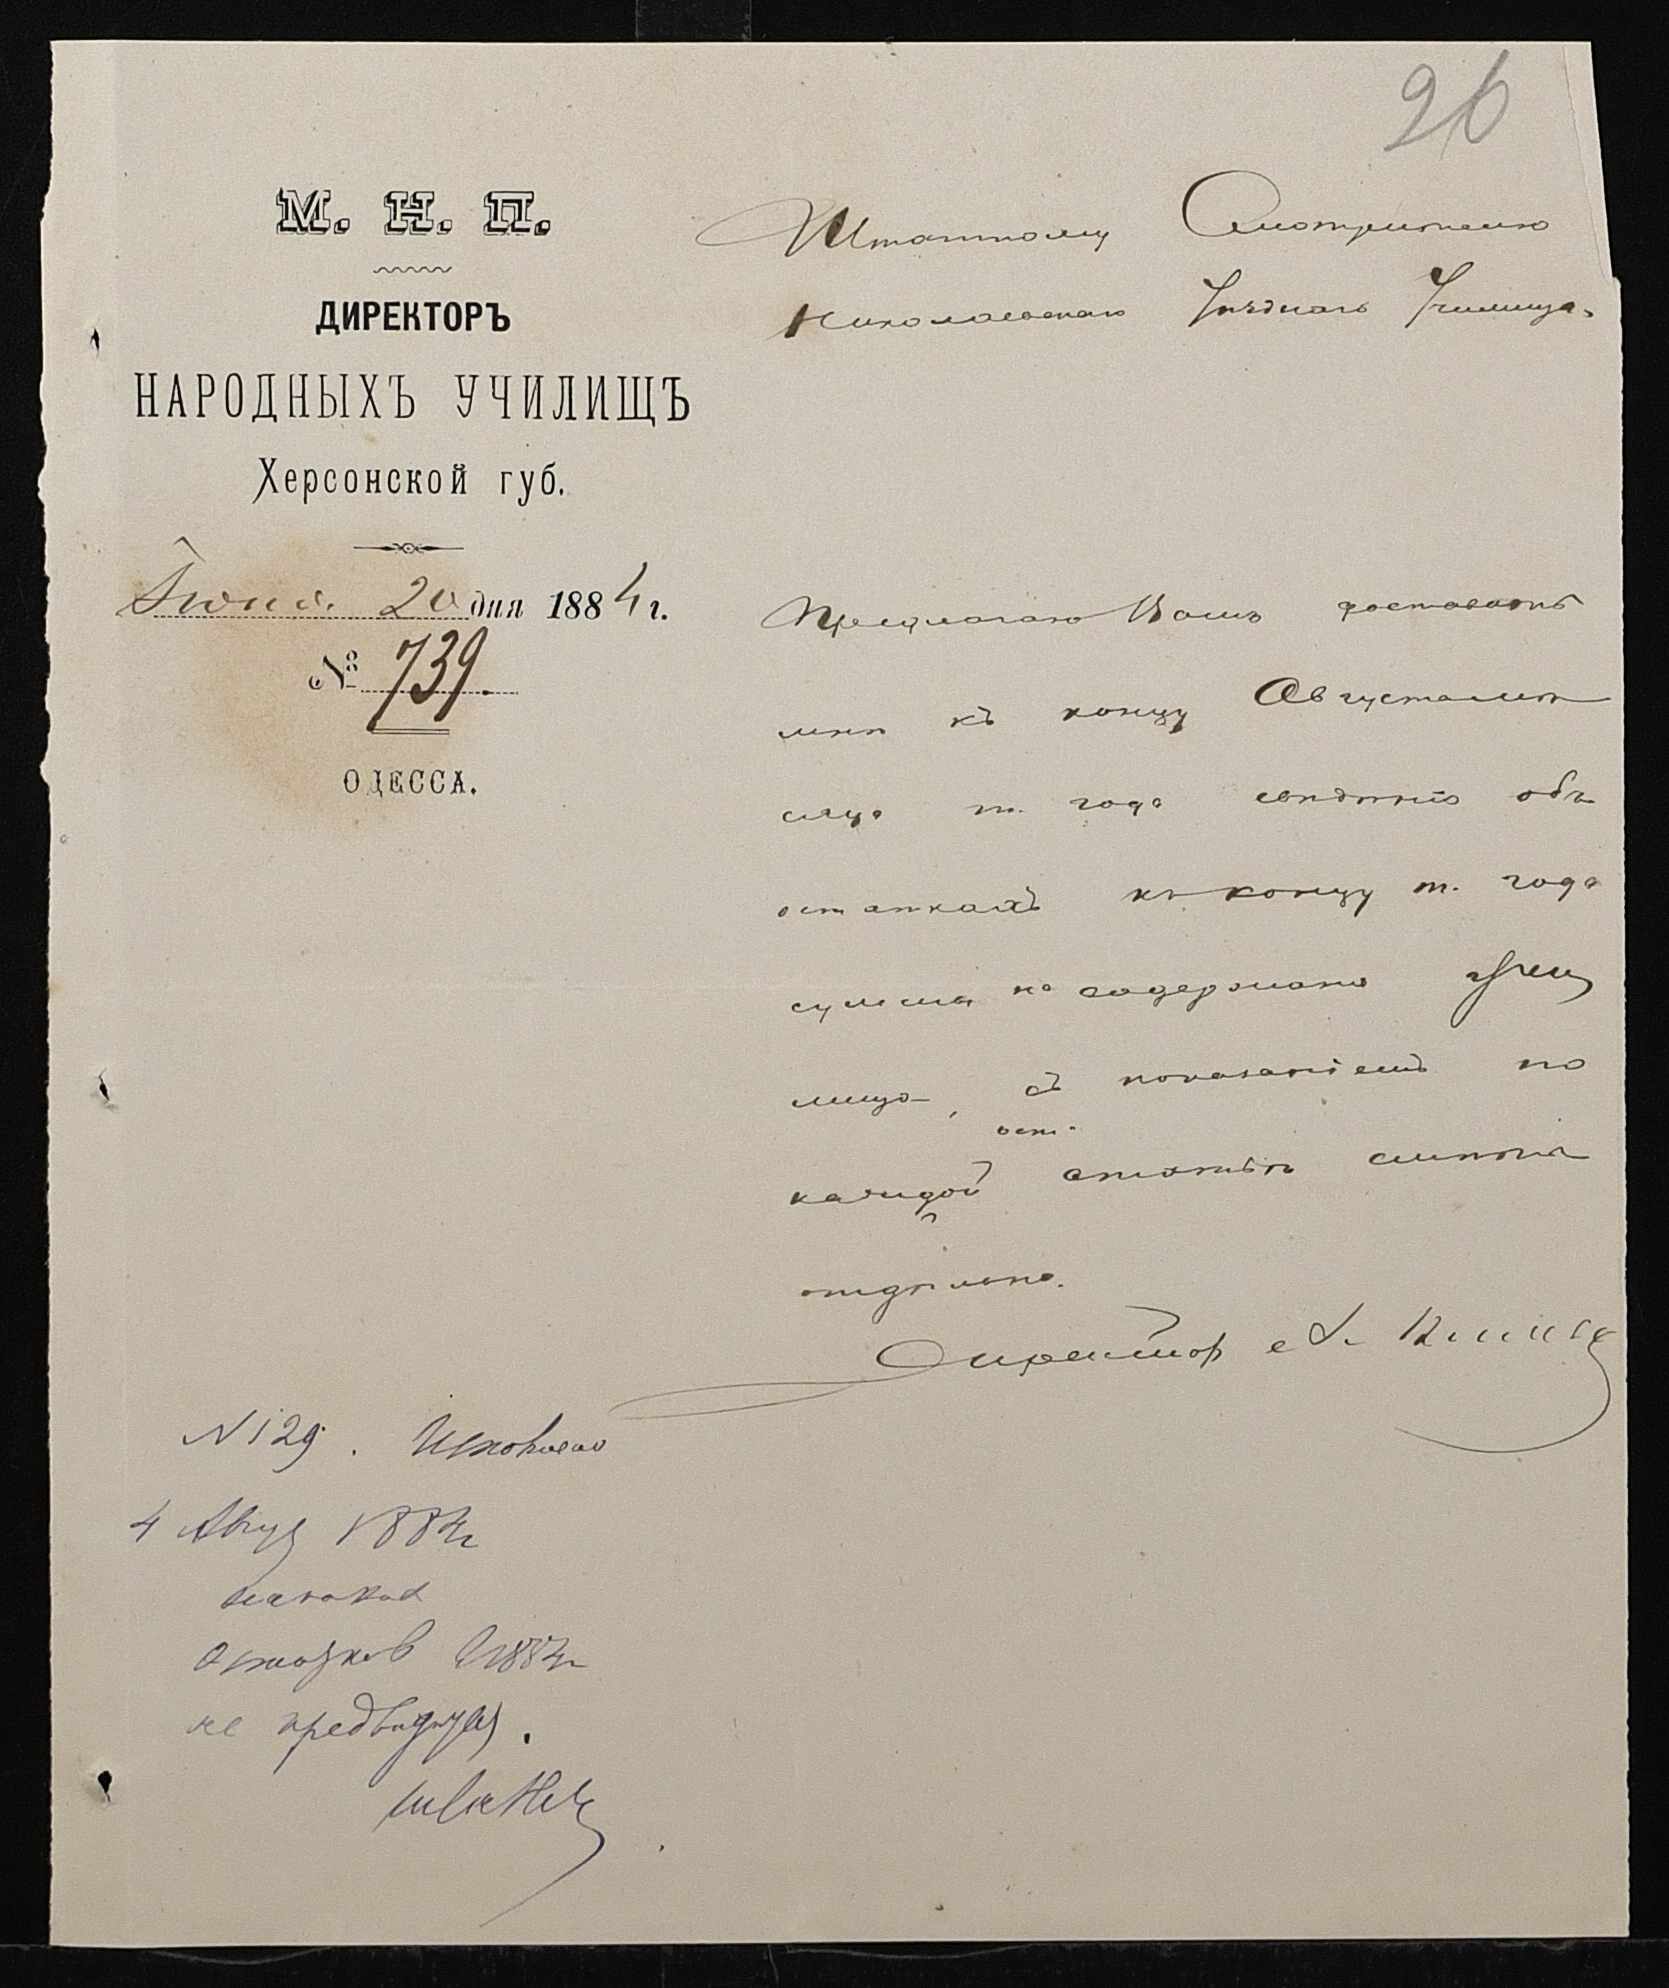 26
М. Н. П.
ДИРЕКТОРЪ
НАРОДНЫХЪ УЧИЛИЩЪ
Херсонской губ.
Іюня 20 дня 1884 г.
№ 739.
ОДЕССА.
Штатному Смотрителю
Николаевскаго Уѣзднаго Училища.
Предлагаю Вамъ доставить
мнѣ къ концу Августа мѣ
сяца т. года свѣдѣнія объ
остаткахъ къ концу т. года
суммы на содержаніе Учи
лища, съ показаніемъ по
каждой статьѣ смѣты
ост.
отдѣльно.
Директоръ
N 129. Исполнено
4 Авгус 1884 г
остатков 1884 г
не предвидится.